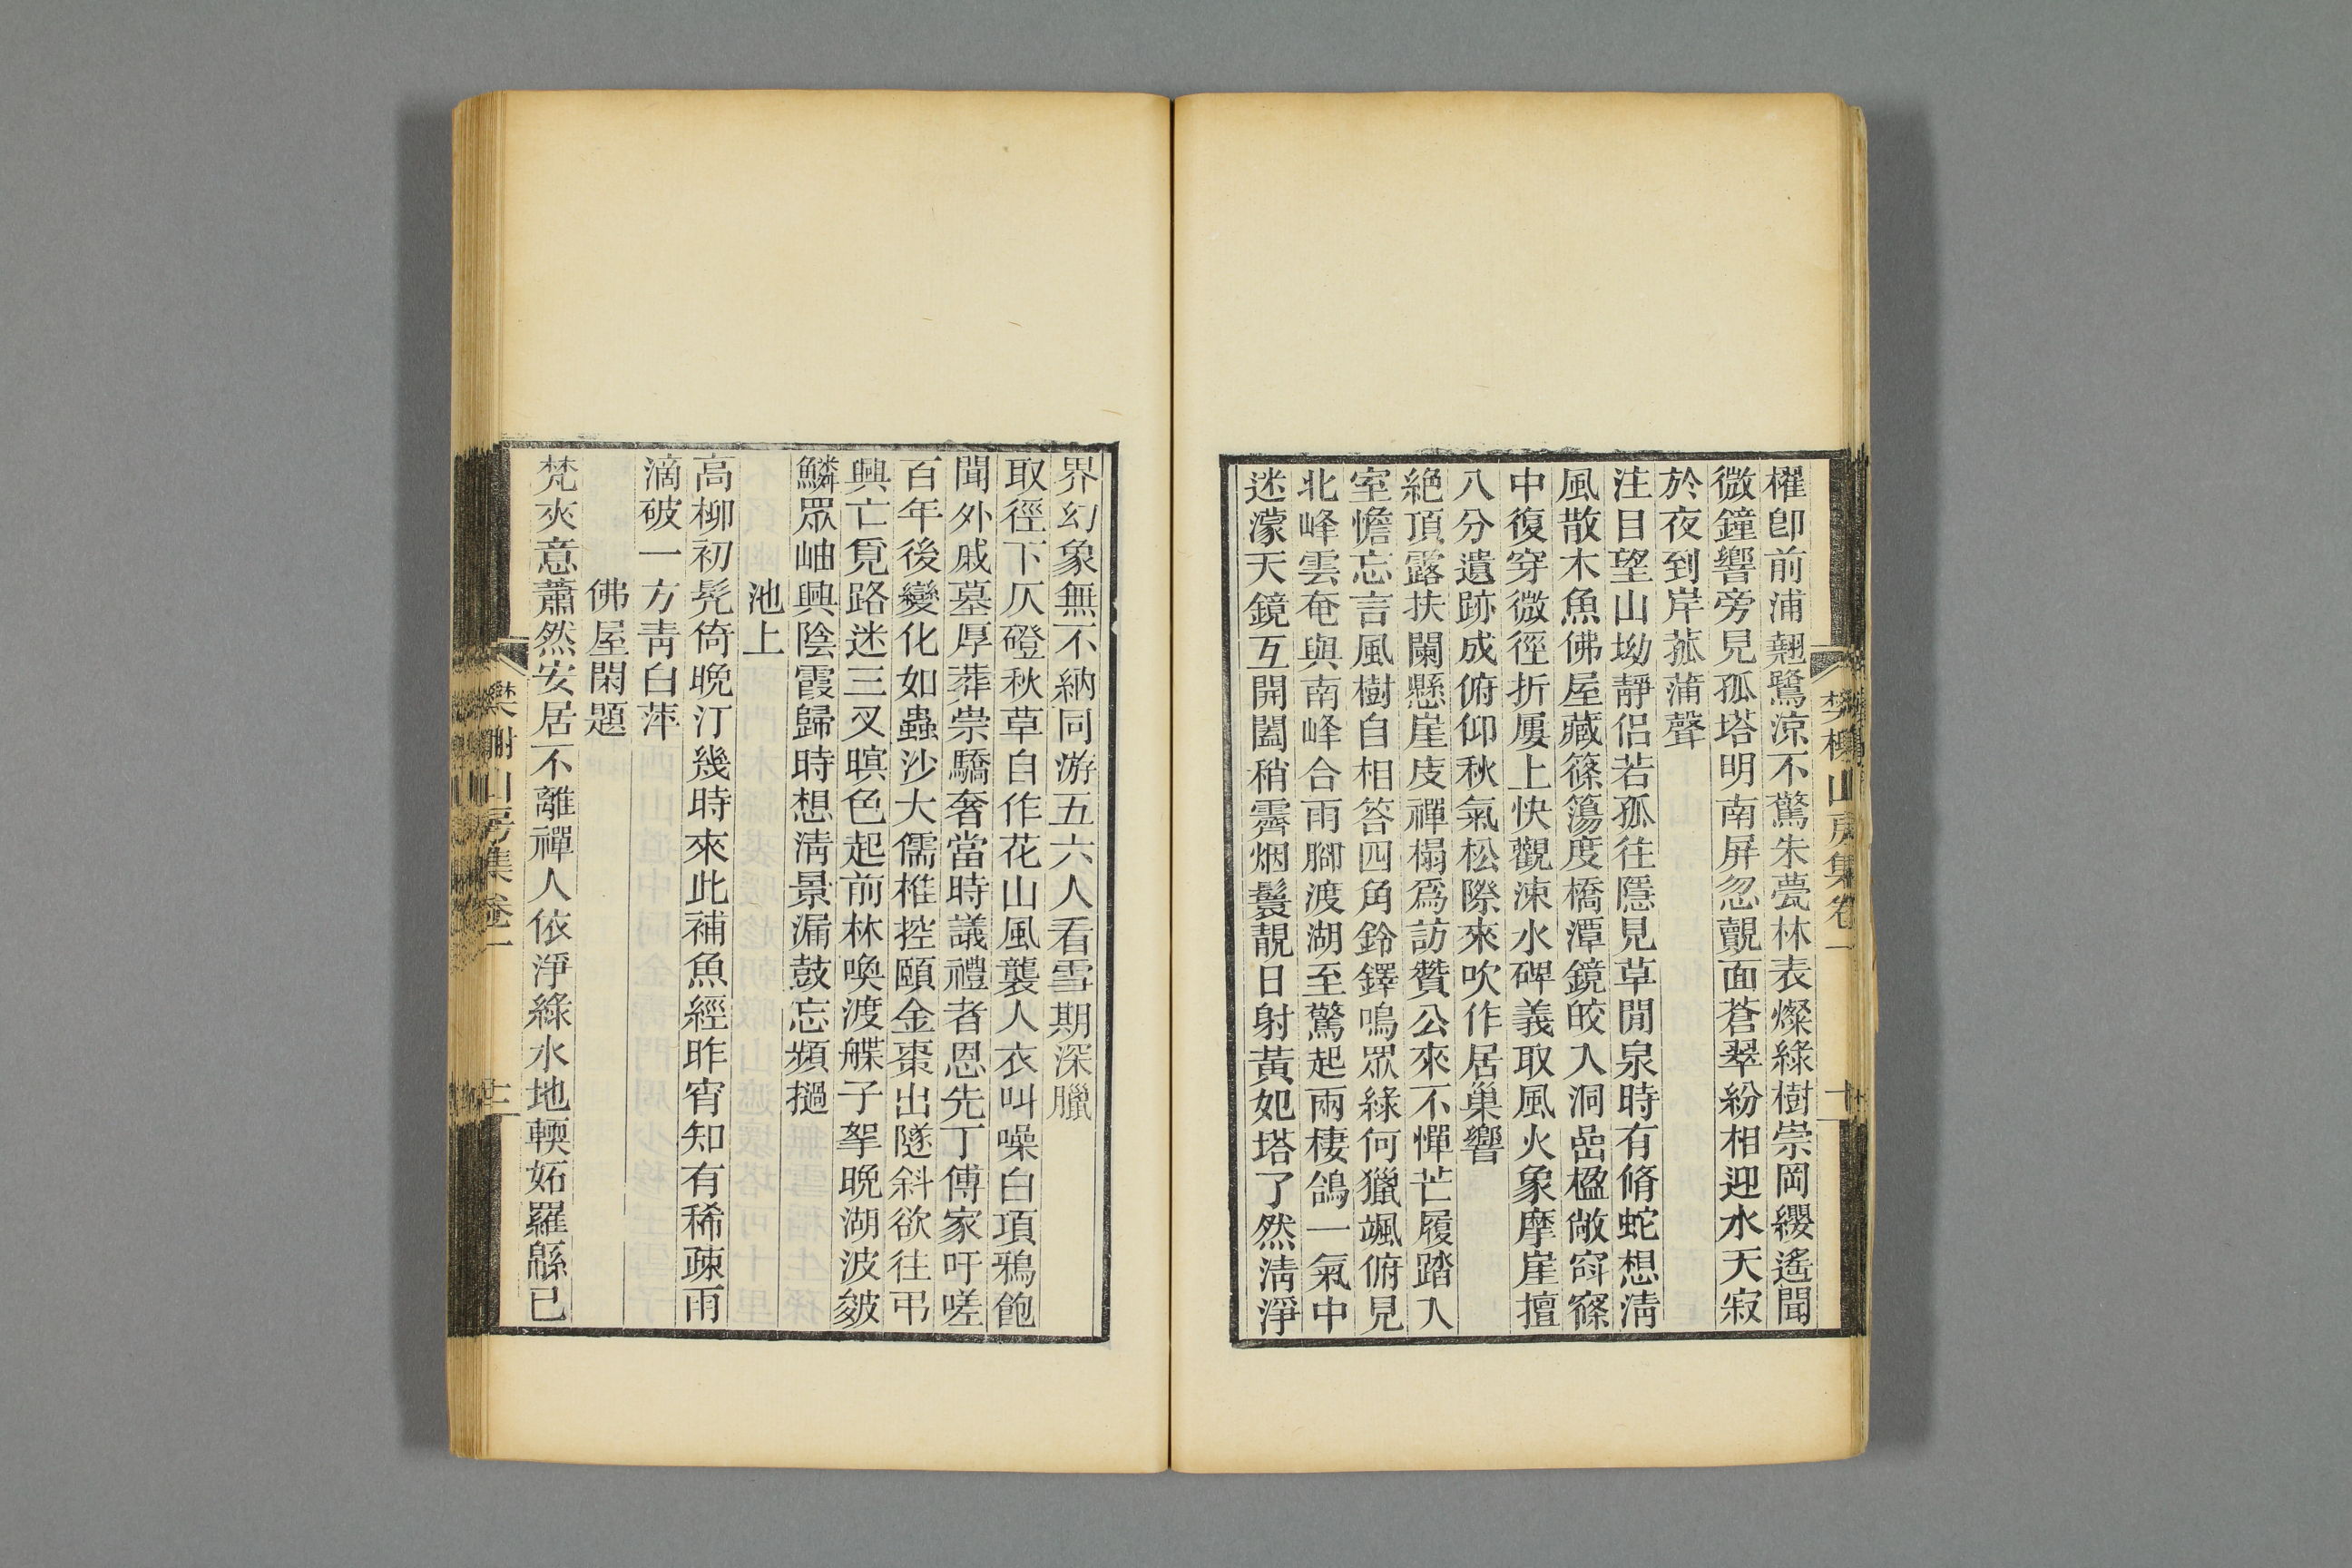 樊榭山房集卷一
十二
櫂卽前浦翹鷺涼不驚朱甍林表燦綠樹崇岡纓遙聞
微鐘響旁見孤塔明南屏忽覿面蒼翠紛相迎水天寂
於夜到岸菰蒲聲
注目望山坳靜侶若孤往隱見草閒泉時有脩蛇想清
風散木魚佛屋藏篠簜度橋潭鏡皎入洞嵒楹敞窅窱
中復穿微徑折屢上快觀涑水碑義取風火象摩崖擅
八分遺跡成俯仰秋氣松際來吹作居巢響
絕頂露扶闌懸崖庋禪榻爲訪贊公來不憚芒履踏入
室憺忘言風樹自相答四角鈴鐸鳴眾綠何獵颯俯見
北峰雲奄與南峰合雨腳渡湖至驚起兩棲鴿一氣中
迷濛天鏡互開闔稍霽烟鬟靚日射黃妃塔了然淸淨
界幻象無不納同游五六人看雪期深臘
取徑下仄磴秋草自作花山風襲人衣叫噪白項鴉飽
聞外戚墓厚葬崇驕奢當時議禮者恩先丁傅家吁嗟
百年後變化如蟲沙大儒椎控頤金棗出隧斜欲往弔
興亡覓路迷三叉暝色起前林喚渡艓子拏晩湖波皴
鱗眾岫興陰霞歸時想淸景漏鼓忘頻撾
池上
高柳初髡倚晩汀幾時來此補魚經昨宵知有稀疎雨
滴破一方靑白萍
佛屋閑題
梵夾意蕭然安居不離禪人依淨綠水地輭妬羅緜已
樊榭山房集卷一